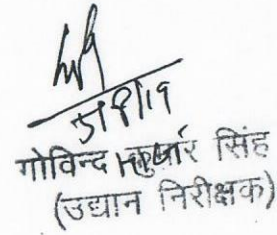 गोविन्द कुमार सिंह
(उद्यान निरीक्षक)